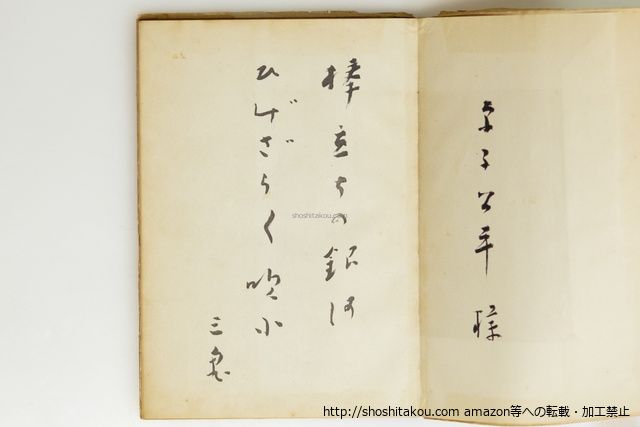 子公平 様
棒立ちの銀河
ひげざら〳〵唄ふ
三鬼
shoshitakou.com
http://shoshitakou.com amazon等への転載・加工禁止